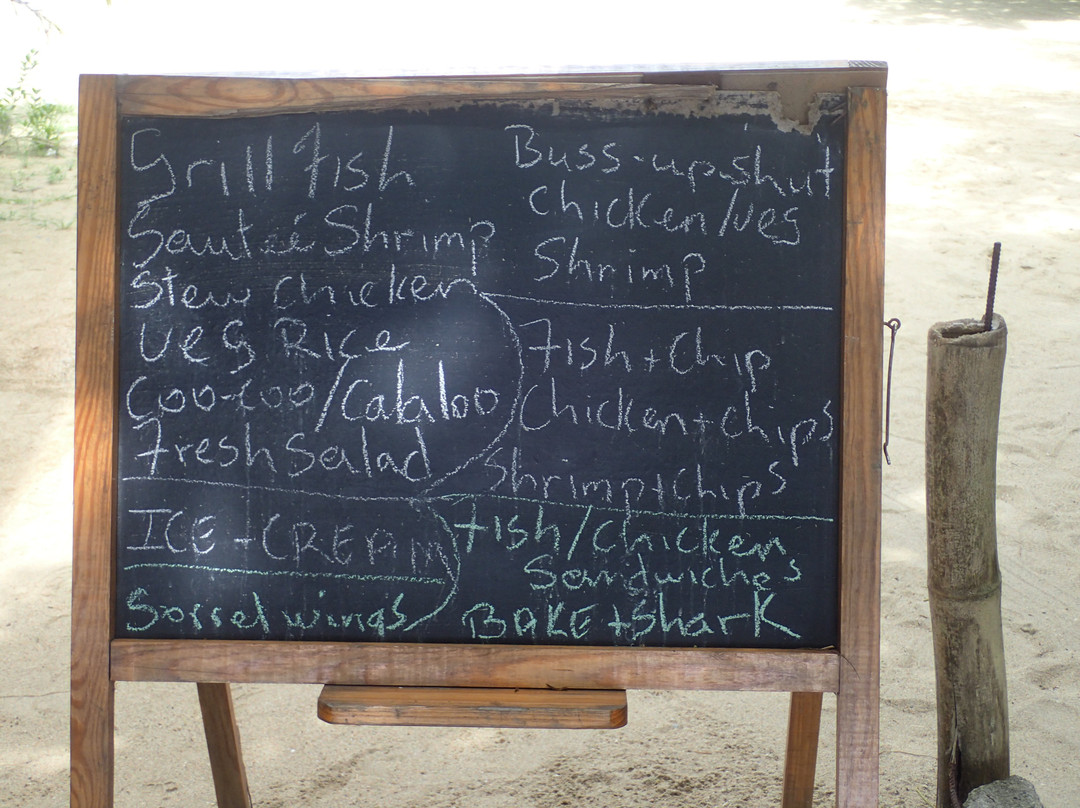 Grill Fish
Sauteé Shrimp
Stew chicken
Veg Rice
Coo-coo/Calaloo
Fresh Salad
ICE-CREAM
Sorrel wings
Buss-up-shut
Chicken/veg
Shrimp
Fish+Chip
Chicken+chips
Shrimp+chips
Fish/Chicken
Sandwiches
BAKE+Shark